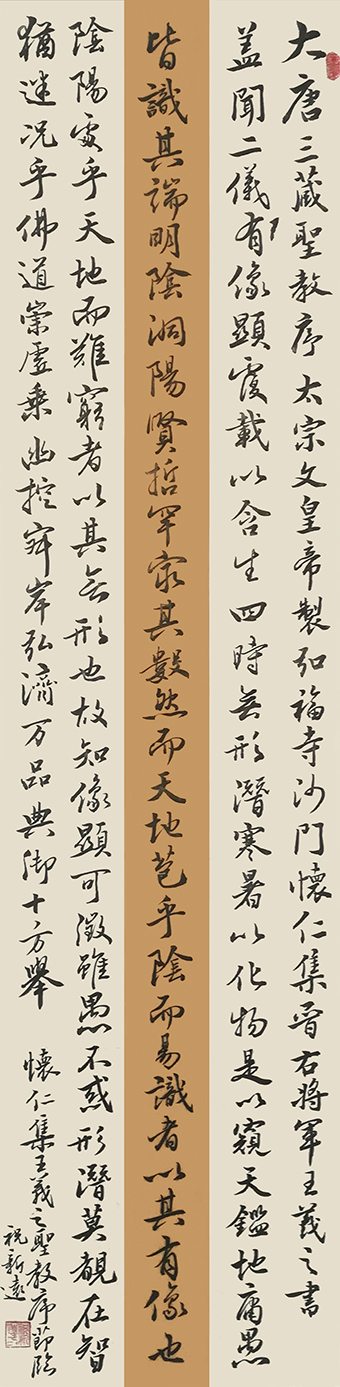 大唐三藏聖教序太宗文皇帝製弘福寺沙門懷仁集晉右將軍王羲之書
盖聞二儀有像顯覆載以含生四時無形潛寒暑以化物是以窺天鑑地庸愚
皆識其端明陰洞陽賢哲罕窮其數然而天地苞乎陰而易識者以其有像也
陰陽處乎天地而難窮者以其無形也故知像顯可徵雖愚不惑形潛莫覩在智
猶迷況乎佛道崇虛乘幽控寂岸弘濟万品典御十方舉
懷仁集王羲之聖教序節臨
祝新遠